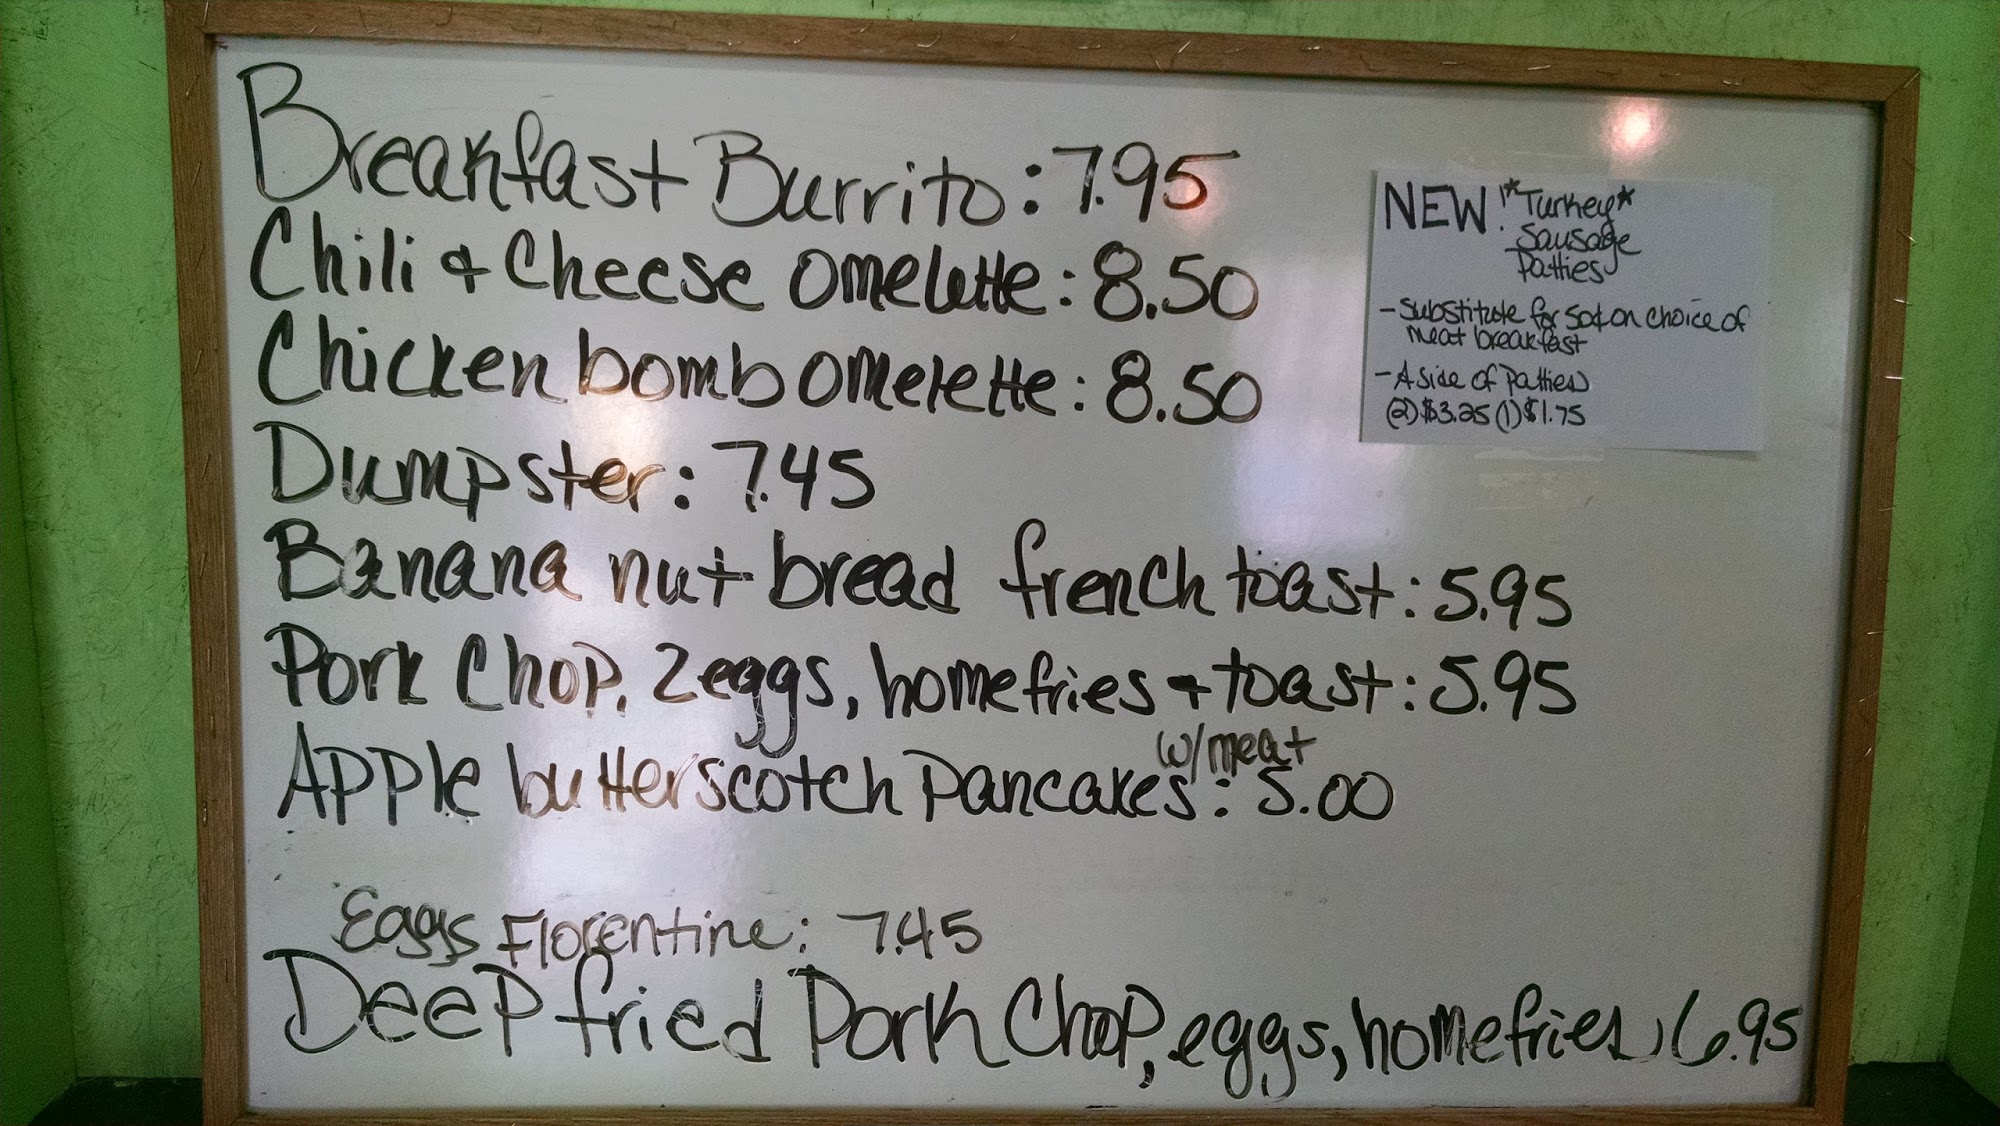 Breakfast Burrito: 7.95
Chili & Cheese omelette: 8.50
Chicken bomb omelette: 8.50
Dumpster: 7.45
Banana nut bread french toast: 5.95
Pork Chop, 2 eggs, homefries & toast: 5.95
w/meat
Apple butterscotch Pancakes: 5.00
Eggs Florentine: 7.45
Deep fried Pork Chop, eggs, homefries, 6.95
NEW! *Turkey*
Sausage
Patties
- Substitute for 50¢ on choice of
meat breakfast
- A side of Patties
(2) $3.25 (1) $1.75